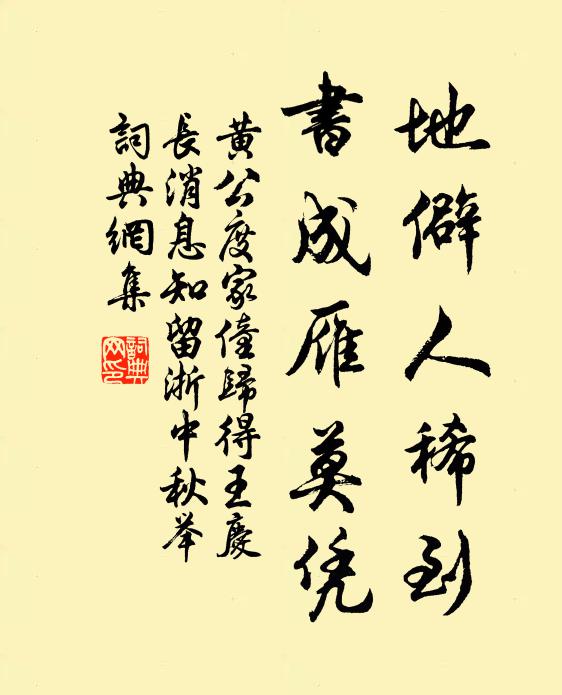 地僻人稀到
書成雁莫凭
黄公度家僮歸得王慶
長消息知留浙中秋举
詞典網集
詞典
网印